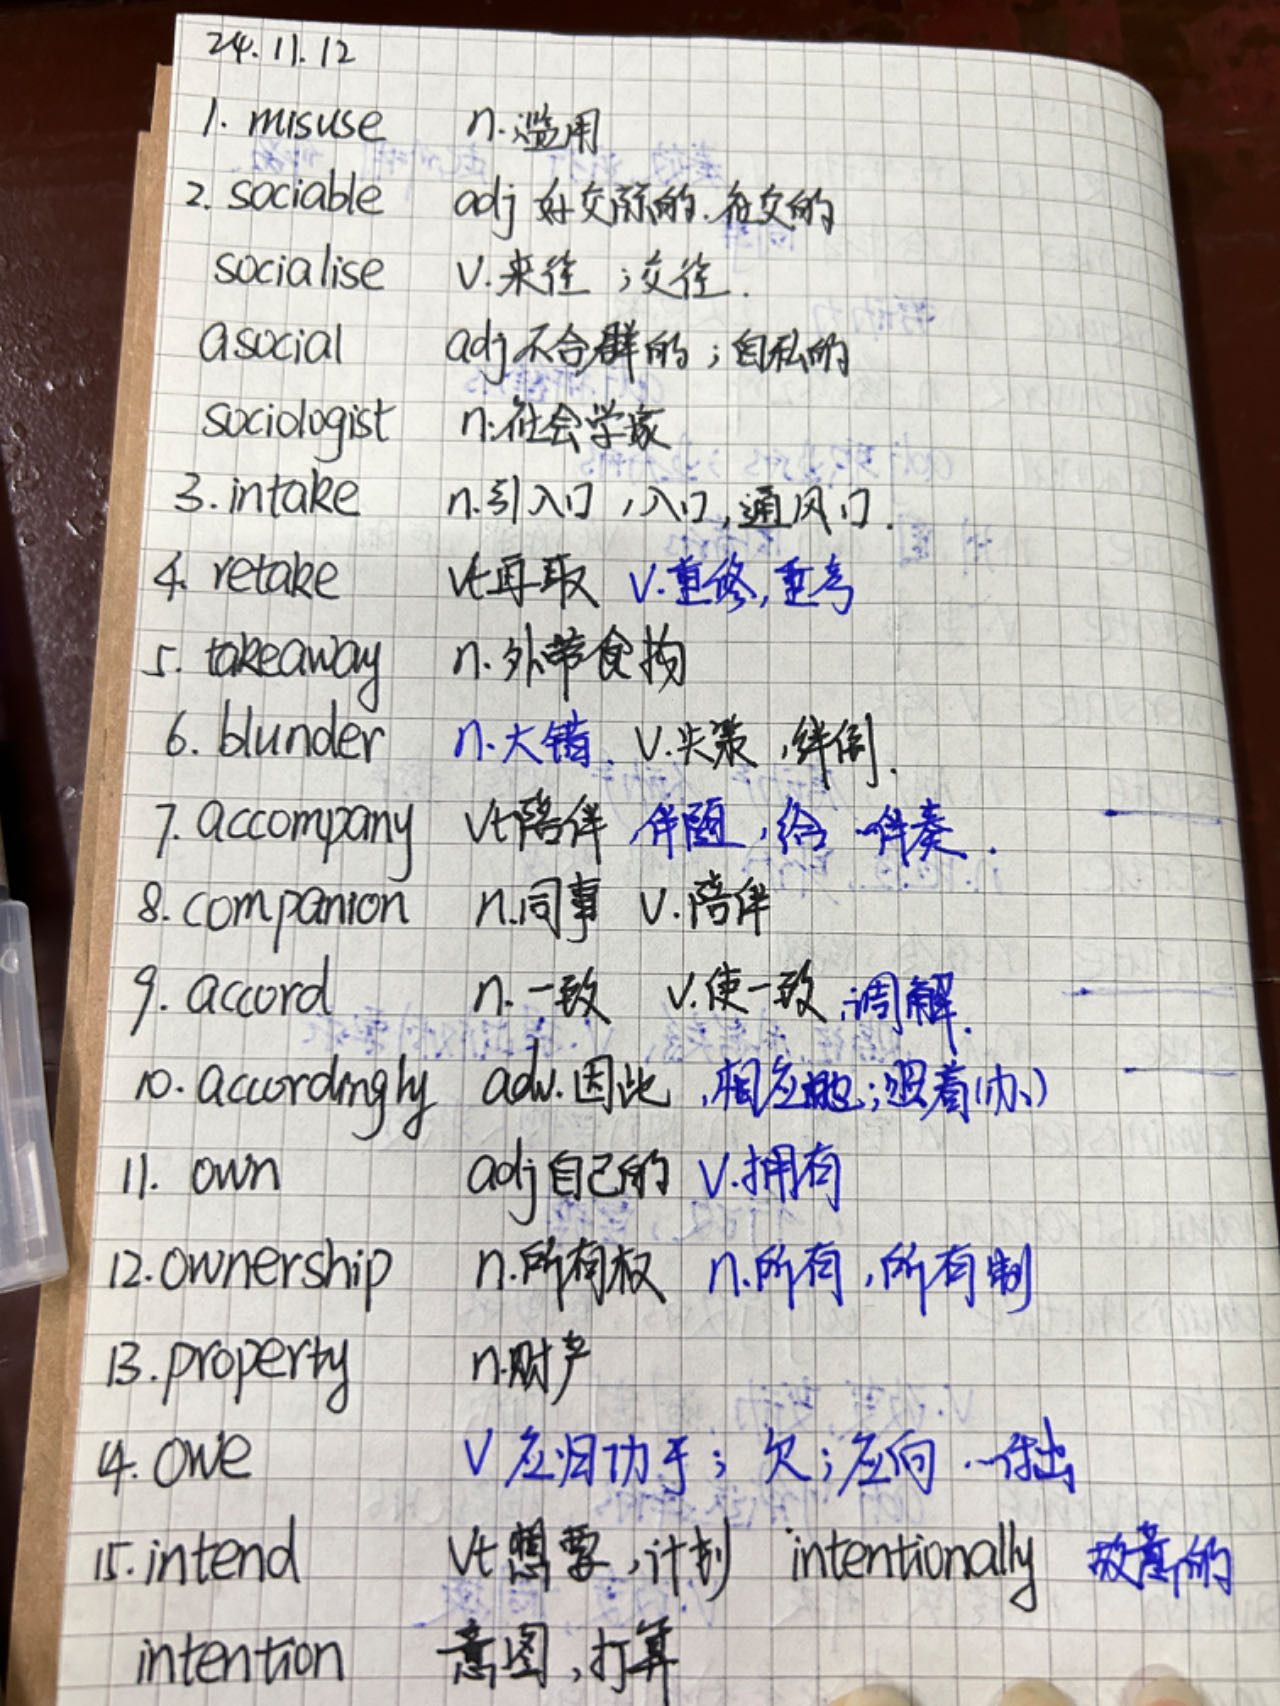 24.11.12
1. misuse n. 滥用
2. sociable adj 好交际的.社交的
socialise v. 来往;交往.
asocial adj 不合群的;自私的
sociologist n. 社会学家
3. intake n. 引入口,入口,通风口.
4. retake vt 再取 v. 重修,重考
5. takeaway n. 外带食物
6. blunder n. 大错. v. 失策,绊倒.
7. accompany vt 陪伴 伴随,给…伴奏.
8. companion n. 同事 v. 陪伴
9. accord n. 一致 v. 使一致,调解.
10. accordingly adv. 因此,相应地;照着(办)
11. own adj 自己的 v. 拥有
12. ownership n. 所有权 n. 所有,所有制
13. property n. 财产
14. owe v 应归功于; 欠;应向…付出
15. intend vt 想要,计划 intentionally 故意的
intention 意图,打算